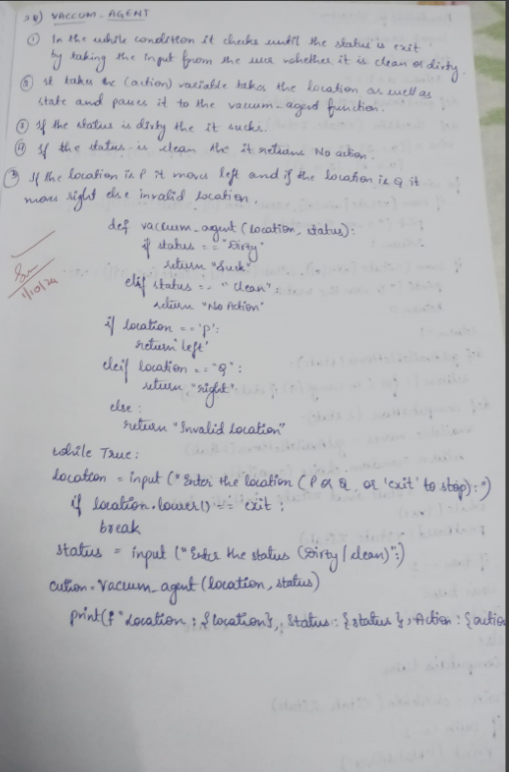 2Q) VACCUM-AGENT
① In the while condition it checks until the status is exit
by taking the input from the user whether it is clean or dirty.
② It takes the (action) variable takes the location as well as
state and passes it to the vacum-agent function.
③ If the status is dirty the it sucks.
④ If the status is clean the it returns No action.
⑤ If the location is P it moves left and if the location is Q it
moves right else invalid location
def vaccum_agent (location, status):
if status == "Dirty"
return "Suck"
elif status == "clean":
return "No Action"
if location == 'P':
return left'
elif location == "Q":
return "right"
else:
return "Invalid Location"
1/10/24
while True:
location = input ("Enter the location (P or Q, or 'exit' to stop):")
if location.lower() == 'exit':
break
status = input ("Enter the status (Dirty/clean)":)
action = vaccum_agent (location, status)
print(f "Location : {location}, Status: {status}, Action : {action